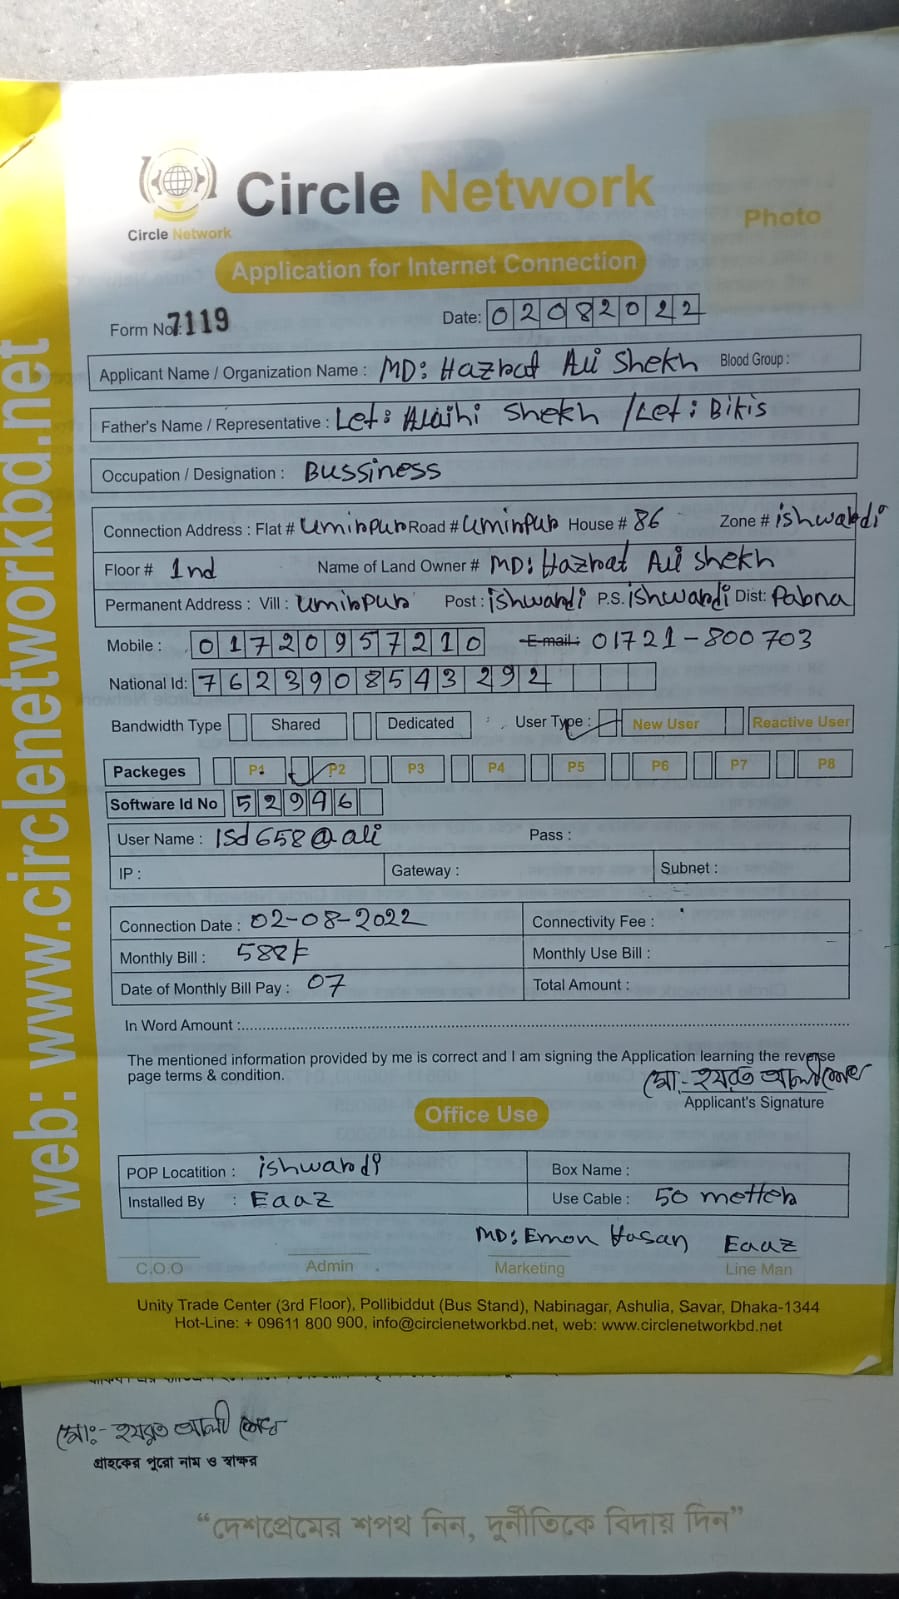 Circle Network
Circle Network
Photo
Application for Internet Connection
Form No: 7119 Date: 02082022
Applicant Name / Organization Name : MD: Hazrat Ali Shekh Blood Group :
Father's Name / Representative : Let: Alaihi Shekh / Let: Bikis
Occupation / Designation : Bussiness
Connection Address : Flat # Umirpur Road # Umirpur House # 86 Zone # ishwardi
Floor # 1nd Name of Land Owner # MD: Hazrat Ali Shekh
Permanent Address : Vill : Umirpur Post : ishwardi P.S. iShwardi Dist: Pabna
Mobile : 01720957210 E-mail : 01721-800703
National Id: 7623908543292
Bandwidth Type Shared Dedicated User Type : New User Reactive User
Packeges P1 P2 P3 P4 P5 P6 P7 P8
Software Id No 52996
User Name : ISd658@ali Pass :
IP : Gateway : Subnet :
Connection Date : 02-08-2022 Connectivity Fee :
Monthly Bill : 588 Monthly Use Bill :
Date of Monthly Bill Pay : 07 Total Amount :
In Word Amount :
The mentioned information provided by me is correct and I am signing the Application learning the reverse
page terms & condition.
মো:- হযরত আলী শেখ
Applicant's Signature
Office Use
POP Locatition : ishwardi Box Name :
Installed By : Eaaz Use Cable : 50 metter
MD: Emon Hasan Eaaz
C.O.O Admin Marketing Line Man
Unity Trade Center (3rd Floor), Pollibiddut (Bus Stand), Nabinagar, Ashulia, Savar, Dhaka-1344
Hot-Line: + 09611 800 900, info@circlenetworkbd.net, web: www.circlenetworkbd.net
web: www.circlenetworkbd.net
মোঃ- হযরত আলী শেখ
গ্রাহকের পুরো নাম ও স্বাক্ষর
“দেশপ্রেমের শপথ নিন, দুর্নীতিকে বিদায় দিন”